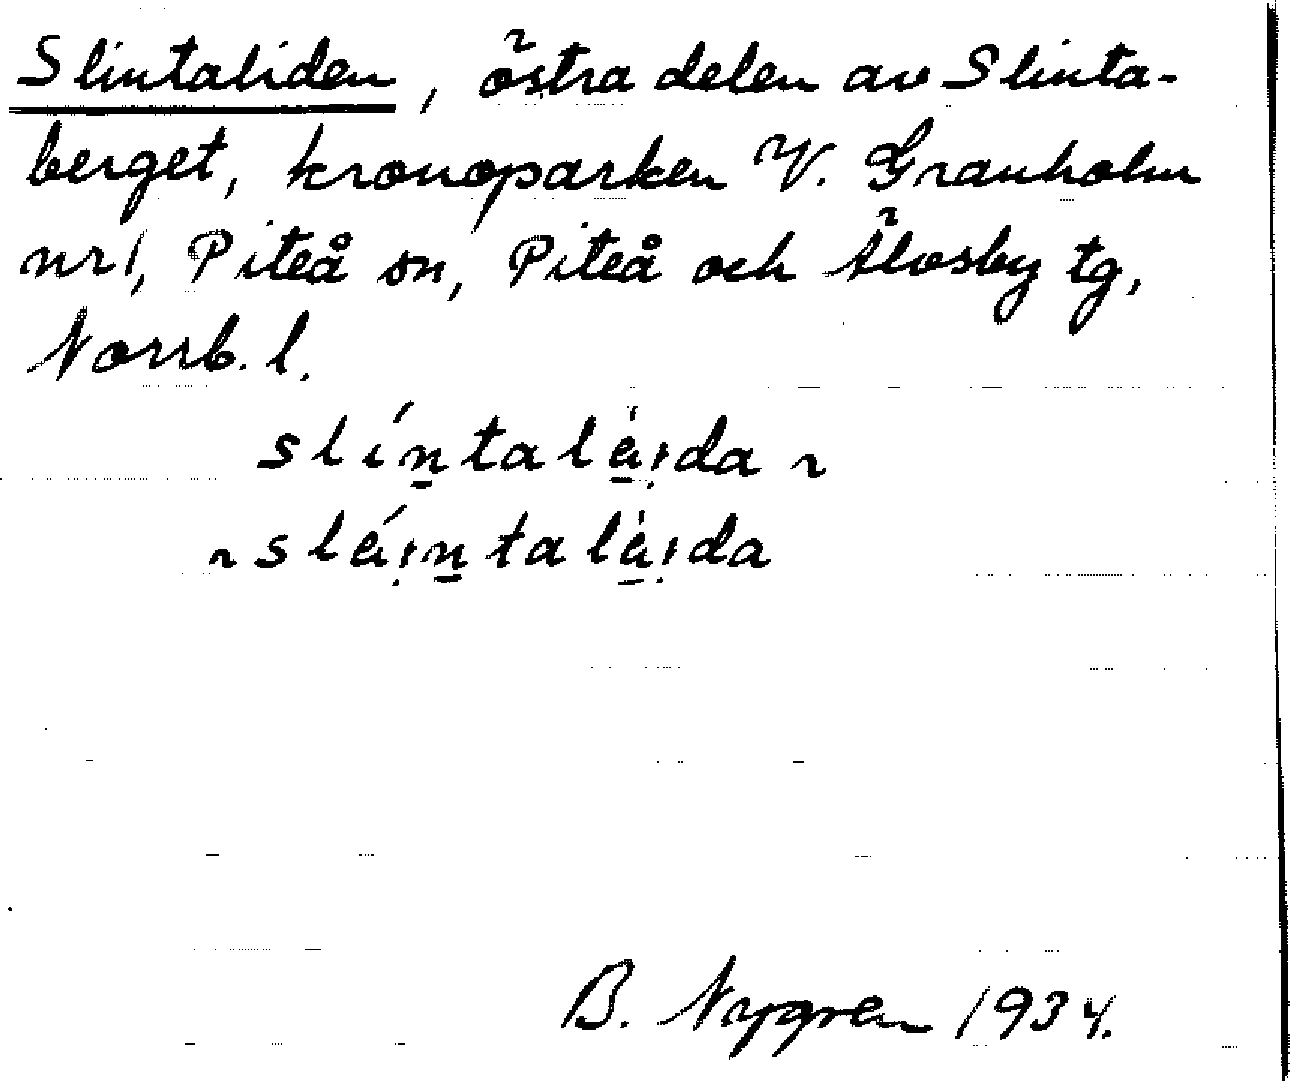 Slintaliden, östra delen av Slinta-
berget, kronoparken V. Granholm
nr 1, Piteå sn, Piteå och Älvsby tg,
Norrb. l.
slíṉtalè̱ịda ~
~ sléịṉtalè̱ịda
B. Nygren 1934.